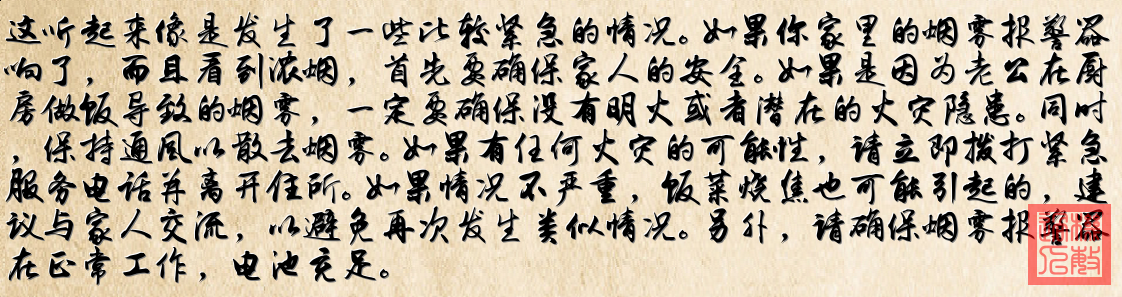 这听起来像是发生了一些比较紧急的情况。如果你家里的烟雾报警器
响了，而且看到浓烟，首先要确保家人的安全。如果是因为老公在厨
房做饭导致的烟雾，一定要确保没有明火或者潜在的火灾隐患。同时
，保持通风以散去烟雾。如果有任何火灾的可能性，请立即拨打紧急
服务电话并离开住所。如果情况不严重，饭菜烧焦也可能引起的，建
议与家人交流，以避免再次发生类似情况。另外，请确保烟雾报警器
在正常工作，电池充足。